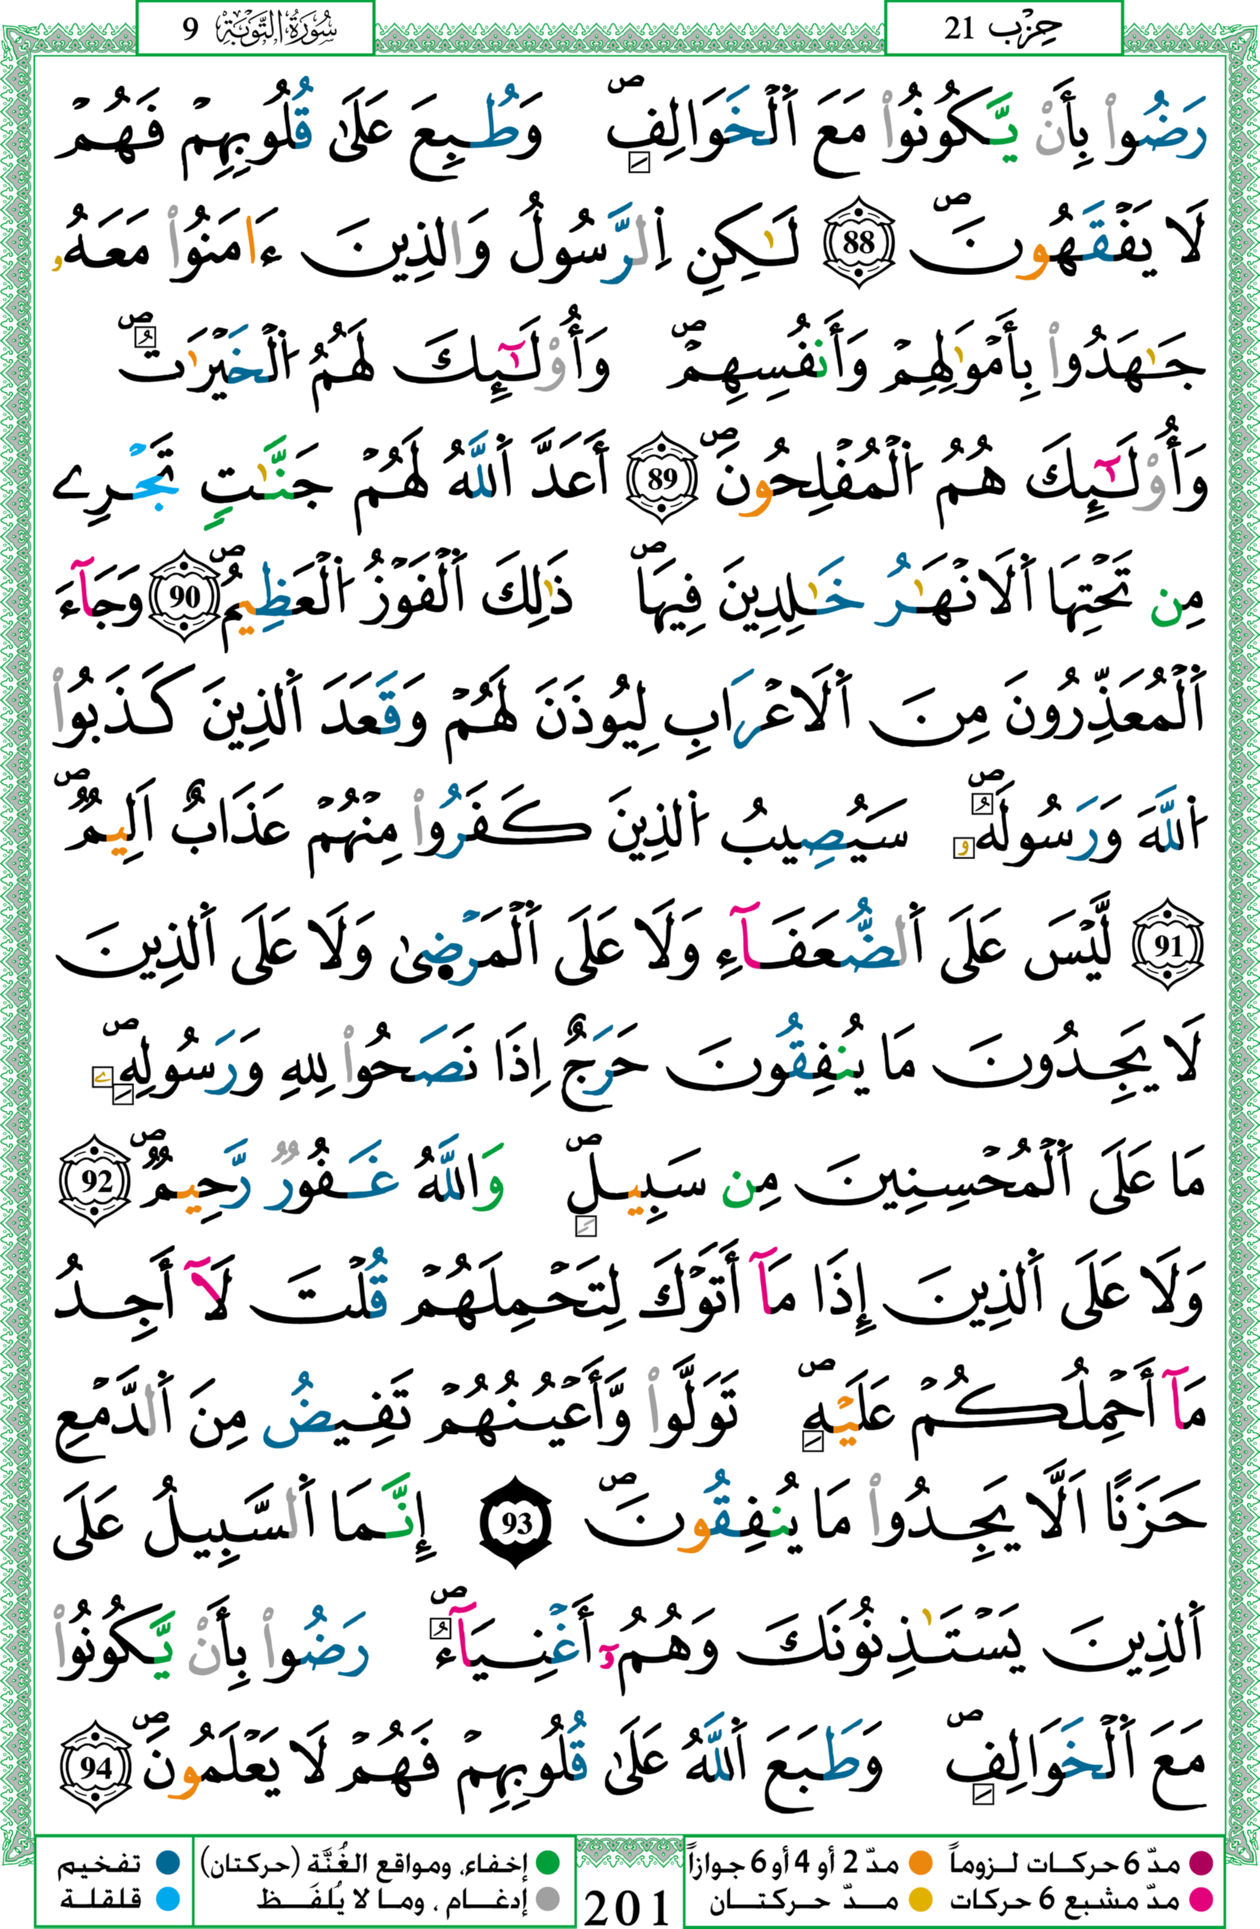 حِزْب 21
سُورَةُ التَّوْبَةِ 9
رَضُواْ بِأَنْ يَّكُونُواْ مَعَ اَ۬لْخَوَالِفِۖ وَطُبِعَ عَلَىٰ قُلُوبِهِمْ فَهُمْ
لَا يَفْقَهُونَۖ 88 لَٰكِنِ اِ۬لرَّسُولُ وَالذِينَ ءَامَنُواْ مَعَهُۥ
جَٰهَدُواْ بِأَمْوَٰلِهِمْ وَأَنفُسِهِمْۖ وَأُوْلَٰٓئِكَ لَهُمُ اُ۬لْخَيْرَٰتُۖ
وَأُوْلَٰٓئِكَ هُمُ اُ۬لْمُفْلِحُونَۖ 89 أَعَدَّ اَ۬للَّهُ لَهُمْ جَنَّٰتٍ تَجْرِے
مِن تَحْتِهَا اَ۬لَانْهَٰرُ خَٰلِدِينَ فِيهَاۖ ذَٰلِكَ اَ۬لْفَوْزُ اُ۬لْعَظِيمُۖ 90 وَجَآءَ
اَ۬لْمُعَذِّرُونَ مِنَ اَ۬لَاعْرَابِ لِيُوذَنَ لَهُمْ وَقَعَدَ اَ۬لذِينَ كَذَبُواْ
اُ۬للَّهَ وَرَسُولَهُۥۖ سَيُصِيبُ اُ۬لذِينَ كَفَرُواْ مِنْهُمْ عَذَابٌ اَلِيمٌۖ
91 لَّيْسَ عَلَى اَ۬لضُّعَفَآءِ وَلَا عَلَى اَ۬لْمَرْضۭىٰ وَلَا عَلَى اَ۬لذِينَ
لَا يَجِدُونَ مَا يُنفِقُونَ حَرَجٌ اِذَا نَصَحُواْ لِلهِ وَرَسُولِهِۦۖ
مَا عَلَى اَ۬لْمُحْسِنِينَ مِن سَبِيلٍۖ وَاللَّهُ غَفُورٌ رَّحِيمٌۖ 92
وَلَا عَلَى اَ۬لذِينَ إِذَا مَآ أَتَوْكَ لِتَحْمِلَهُمْ قُلْتَ لَآ أَجِدُ
مَآ أَحْمِلُكُمْ عَلَيْهِۖ تَوَلَّواْ وَّأَعْيُنُهُمْ تَفِيضُ مِنَ اَ۬لدَّمْعِ
حَزَنًا اَلَّا يَجِدُواْ مَا يُنفِقُونَۖ 93 إِنَّمَا اَ۬لسَّبِيلُ عَلَى
اَ۬لذِينَ يَسْتَٰذِنُونَكَ وَهُمُۥٓ أَغْنِيَآءُۖ رَضُواْ بِأَنْ يَّكُونُواْ
مَعَ اَ۬لْخَوَالِفِۖ وَطَبَعَ اَ۬للَّهُ عَلَىٰ قُلُوبِهِمْ فَهُمْ لَا يَعْلَمُونَۖ 94
مدّ 6 حركات لـزوماً مدّ 2 أو 4 أو 6 جوازاً إخفاء، ومواقع الغُنَّة (حركتان) تفخيم
مدّ مشبع 6 حركات مدّ حركتـان إدغـام ، ومـا لا يُلفَـظ قلقلـة
201